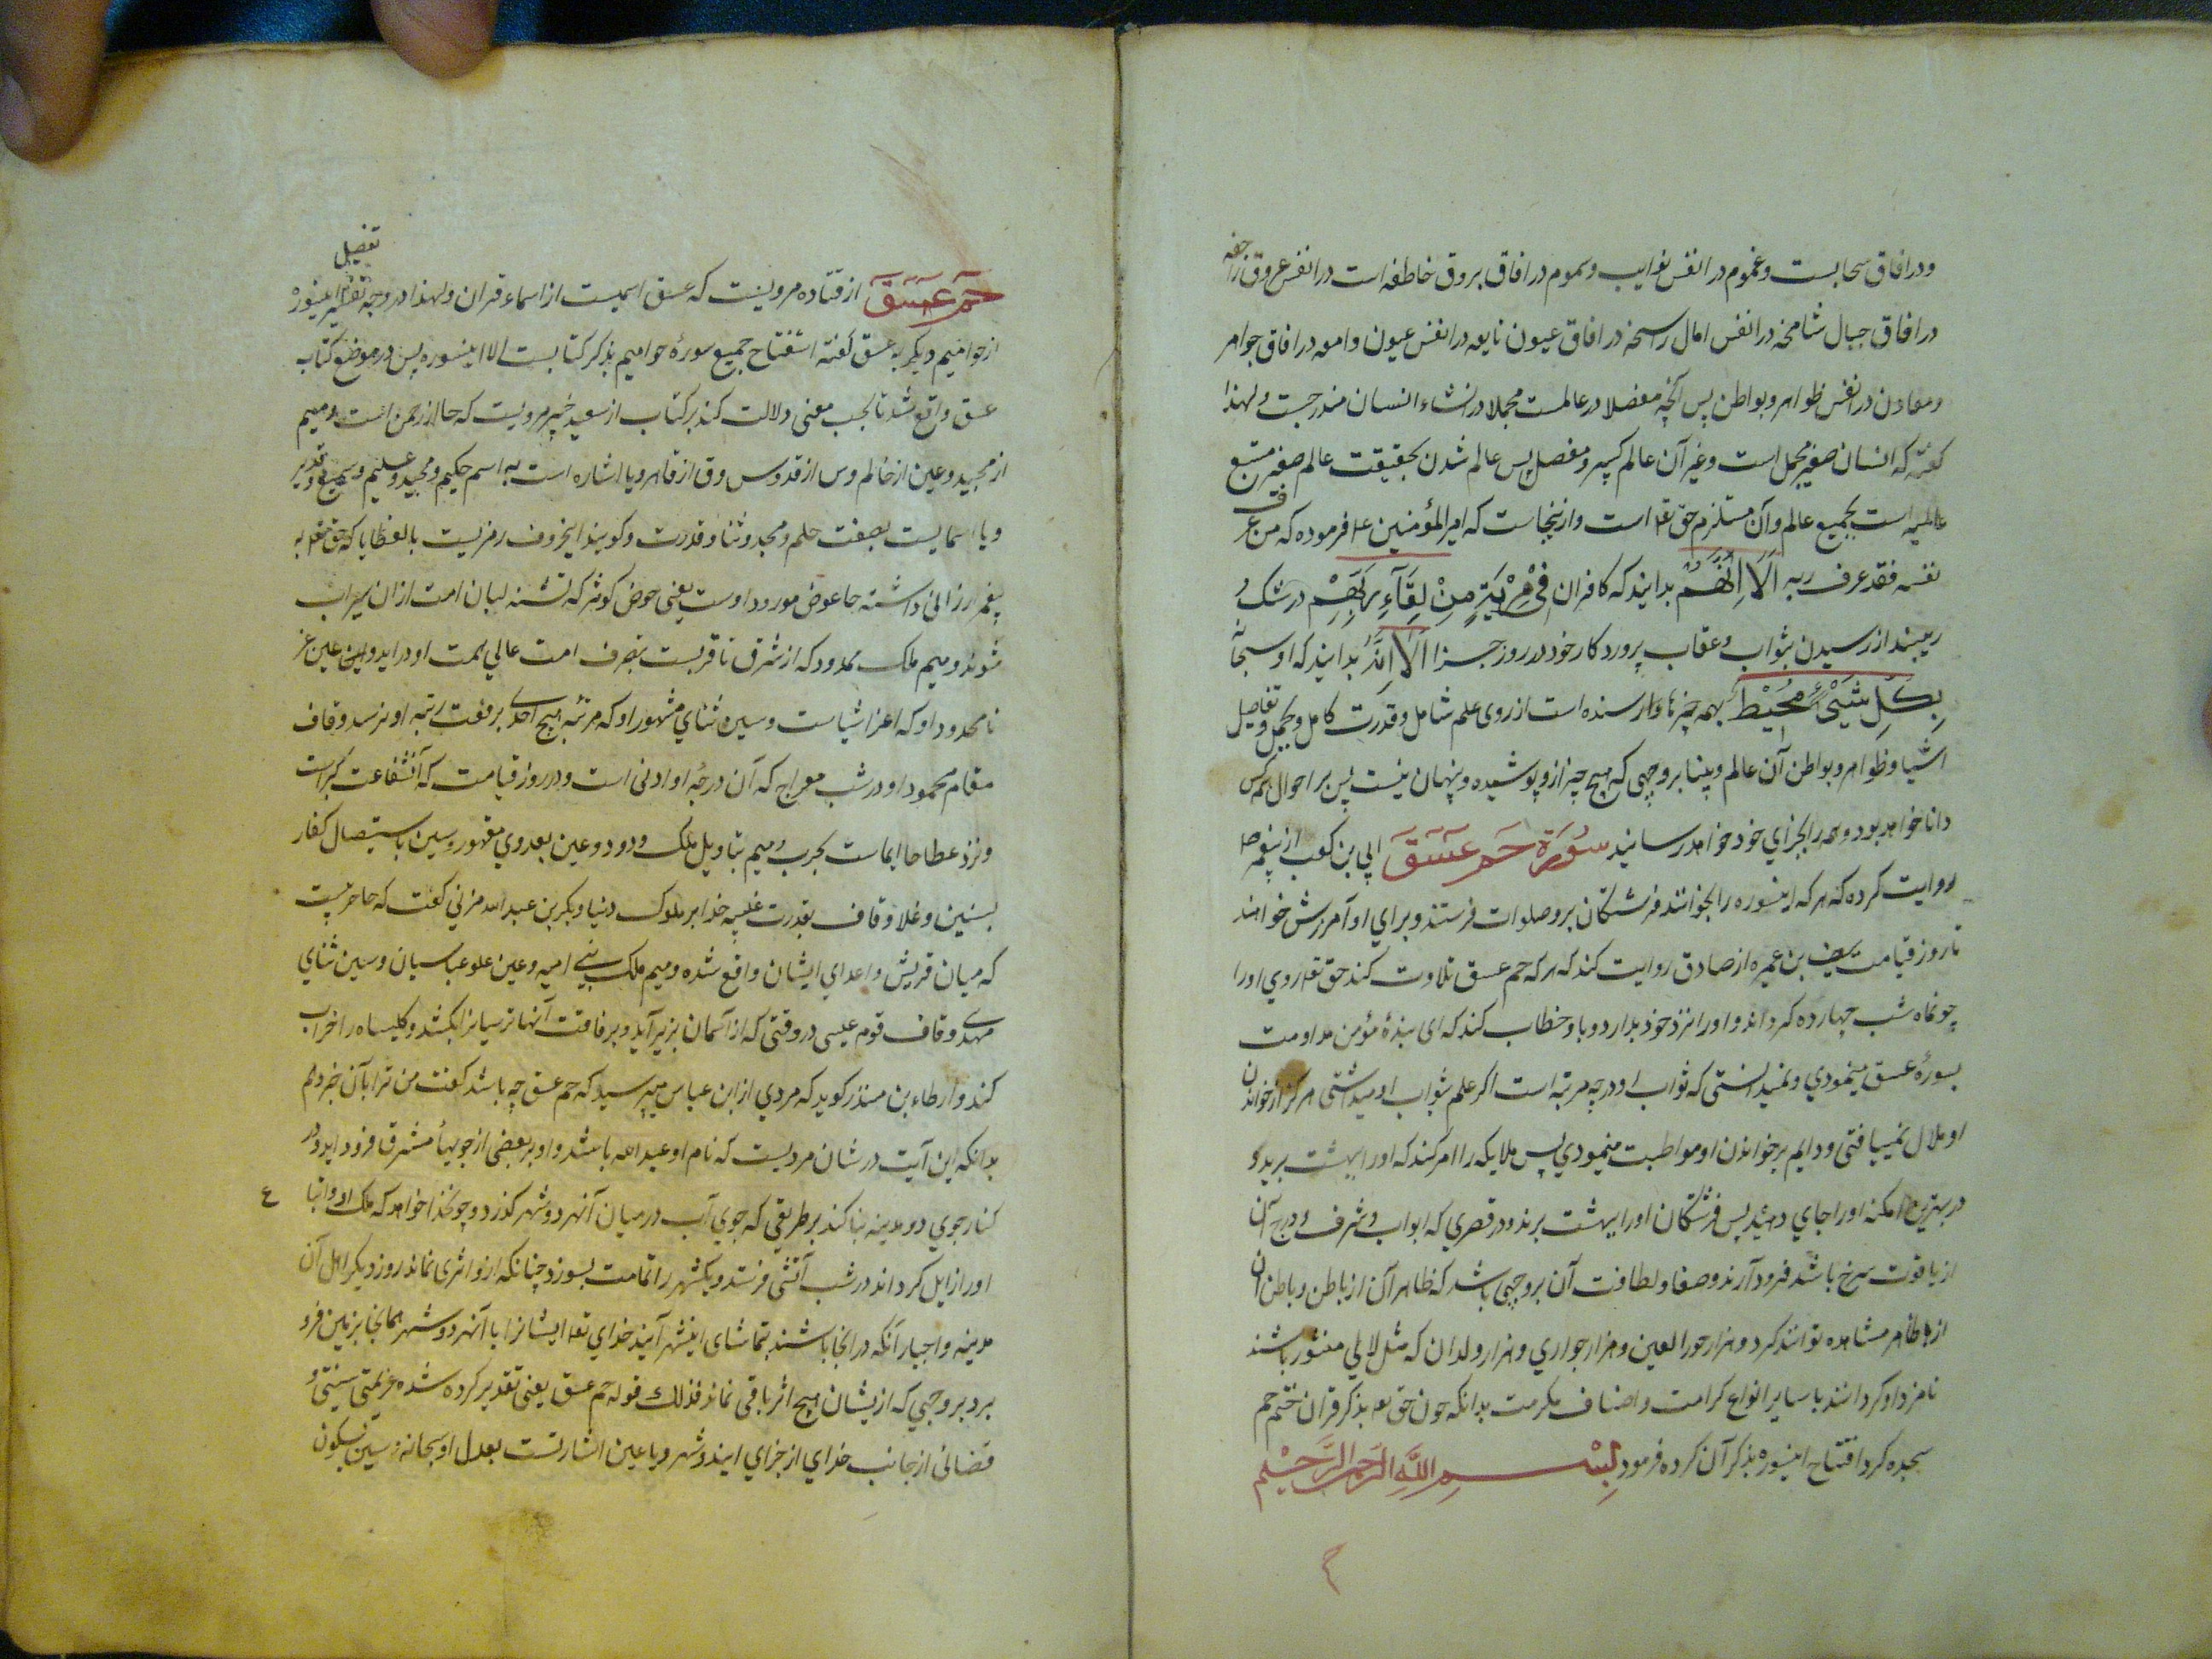 ودر افاق سحابست وغموم در انفس نوایب وسموم در افاق بروق خاطفه است در انفس عروق راجفه
در افاق جبال شامخه در انفس امال راسخه در افاق عیون نابعه در انفس عیون دامعه در افاق جواهر
ومعادن در انفس ظواهر وبواطن پس آنچه مفصلا در عالمست مجملا در انشاء انسان مندرجست ولهذا
گفته که انسان صغیر مجمل است وغیر آن عالم کبیر ومفصل پس عالم شدن بحقیقت عالم صغیر مستتبع
عالمیه است بجمیع عالم وآن مستلزم حق تعه است وازینجاست که امیر المؤمنین ع فرموده که من عرف
نفسه فقد عرف ربه اَلَا اِنَّهُمْ بدانید که کافران فِي مِرْيَةٍ مِنْ لِقَآءِ رَبِّهِمْ در شک و
ریبند از رسیدن بثواب وعقاب پروردکار خود در روز جزا اَلَا اِنَّهُ بدانید که او سبحانه
بِكُلِّ شَيْءٍ مُحِيطٌ بهمه چیزها وارسنده است از روی علم شامل وقدرت کامل ومجمل وتفاصیل
اشیا وظواهر وبواطن آن عالم وبینا بروجهی که هیچ چیز ازو پوشیده وپنهان نیست پس بر احوال همه کس
دانا خواهد بود وهمه را بجزاي خود خواهد رسانید سُورَة حَم عَسَق ابي بن کعب از پیغمبر ص
روایت کرده که هر که اینسوره را بخواند فرشتکان برو صلوات فرستند وبراي او آمرزش خواهند
تا روز قیامت سیف بن عمیره از صادق روایت کند که هر که حم عسق تلاوت کند حق تعه روي او را
چو ماه شب چهارده کرداند واو را نزد خود بدارد وباو خطاب کند که ای بندۀ مؤمن مداومت
بسورۀ عسق مینمودي ونمیدانستی که ثواب او درچه مرتبه است اکر علم بثواب او میداشتی هرکز از خواندن
او ملال نمییافتی ودایم بر خواندن او مواظبت مینمودي پس ملایکه را امر کند که او را ببهشت برید و
در بهترین امکنه او را جاي دهید پس فرشتکان او را ببهشت برند ودر قصري که ابواب وشرف ودرج آن
از یاقوت سرخ باشد فرود آرند وصفا ولطافت آن بروجهی باشد که ظاهر آن از باطن وباطن آن
از ظاهر مشاهده توانند کرد وهزار حور العین وهزار جواري وهزار ولدان که مثل لالي منثور باشند
نامزد او کردانند با سایر انواع کرامت واصناف مکرمت بدانکه چون حق تعه بذکر قران ختم حم
سجده کرد افتتاح اینسوره بذکر آن کرده فرمود بِسْمِ اللَّهِ الرَّحْمٰنِ الرَّحِيْمِ
حم عسق از قتاده مرویست که عسق اسمیست از اسماء قران ولهذا در وجه تفضیل اینسوره
از حوامیم دیکر به عسق کفته استفتاح جمیع سورۀ حوامیم بذکر کتابست الا اینسوره پس در موضع کتاب
عسق واقع شد تا بحسب معنی دلالت کند بر کتاب از سعید جبیر مرویست که حا از رحمن است ومیم
از مجید وعین از عالم وس از قدوس وق از قاهر ویا اشاره است به اسم حکیم ومجید وعلیم وسمیع وقدیر
ویا اسمایست بصفت حلم ومجد وثنا وقدرت وکویند اینحروف رمزیست بالعطایا که حق تعه به
پیغمبر ارزانی داشته حا حوض مورود اوست یعنی حوض کوثر که تشنه لبان امت ازان سیراب
شوند ومیم ملک ممدود که از شرق تا غربست بتصرف امت عالي همت او در اید وعین عز
نامحدود او که اعز اشیاست وسین ثناي مشهور او که مرتبه هیچ احدي برفعت رتبه او نرسد وقاف
مقام محمود او در شب معراج که آن درجۀ او ادنی است ودر روز قیامت که آن شفاعت کبراست
ونزد عطا حا ایماست بحرب ومیم بتاویل ملک ودود وعین بعدوي مقهور وسین باستیصال کفار
بسنین وغلا وقاف بقدرت غلبه خدا بر ملوک دنیا وبکر بن عبد الله مزني کفت که حا حربیست
که میان قریش واعداي ایشان واقع شده ومیم ملک بني امیه وعین علو عباسیان وسین ثناي
مهدي وقاف قوم عیسی در وقتی که از آسمان بزیر آید وبرفاقت آنها ترسایانرا بکشد وکلیساها را خراب
کند وارطاء بن منذر کوید که مردي از ابن عباس میپرسید که حم عسق چه باشد کفت من ترا بآن خبر دهم
بدانکه این آیت در شان مردیست که نام او عبد الله باشد واو بر بعضی از جویهاء مشرق فرود اید ودر
کنار جوي دو مدینه بنا کند بر طریقی که جوي آب در میان آنهر دو شهر کذرد وچو خدا خواهد که ملک او واتباع
او را زایل کرداند در شب آتشی فرستد ویکشهر را بتمامت بسوزد چنانکه ازو اثری نماند روز دیکر اهل آن
مدینه واخبار آنکه در انجا باشند بتماشای اینشهر آیند خداي تعه ایشانرا با آنهر دو شهر همانجا بزمین فرو
برد بروجهي که ازیشان هیچ اثر باقی نماند فذلك قوله حم عسق یعنی تقدیر کرده شده عزیمتی
قضائی از جانب خداي از جزاي ایندو شهر ویا عین اشارتست بعدل او سبحانه وسین بسیکون